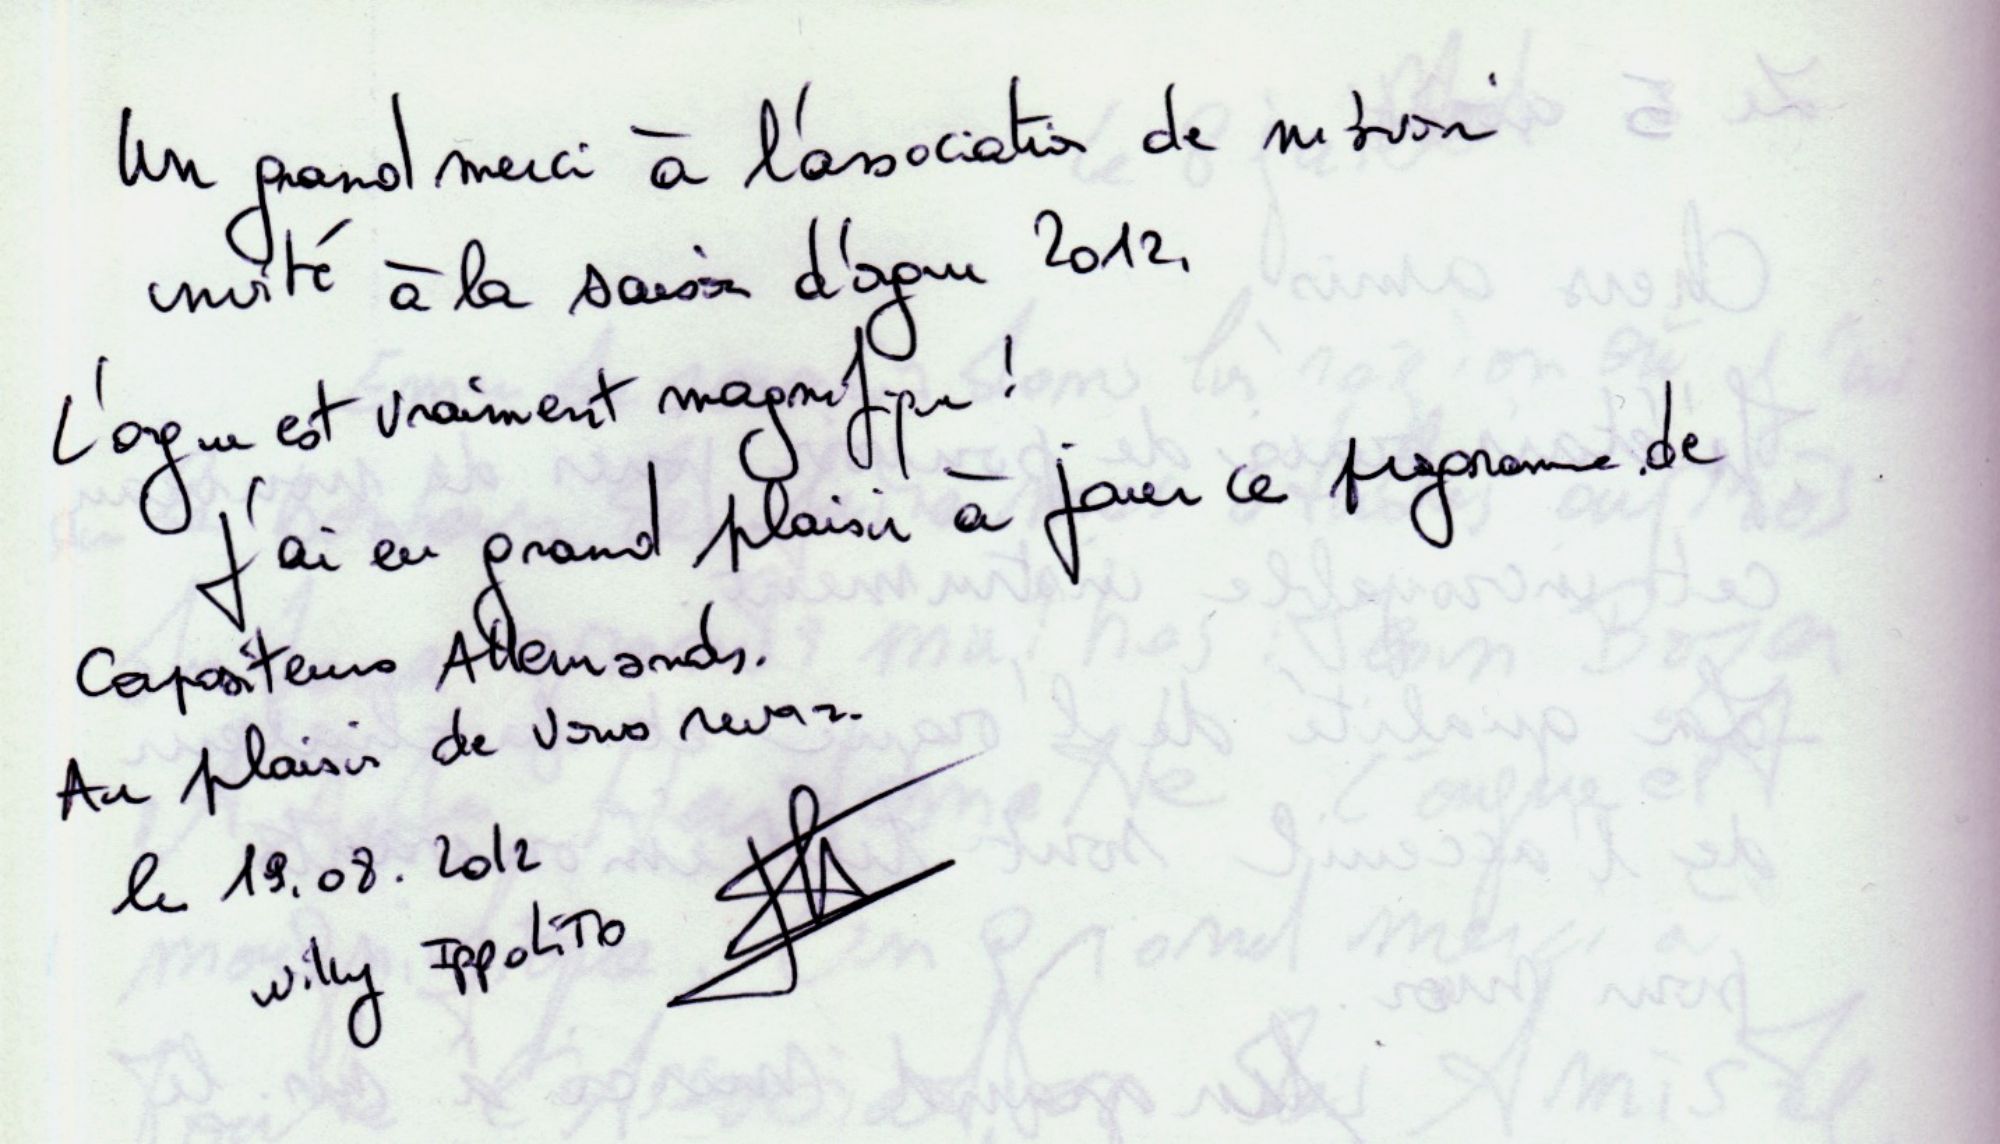 Un grand merci à l'association de m'avoir
invité à la saison d'orgue 2012.
L'orgue est vraiment magnifique !
J'ai eu grand plaisir à jouer ce programme de
Compositeurs Allemands.
Au plaisir de vous revoir.
le 19.08.2012
Willy Ippolito